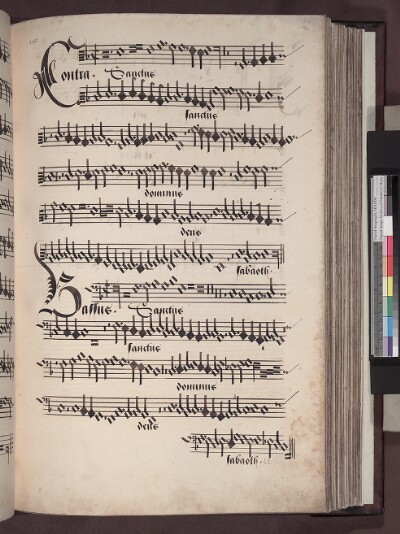 Contra. Sanctus
sanctus
dominus
deus
sabaoth.
Bassus. Sanctus
sanctus
dominus
deus
sabaoth.